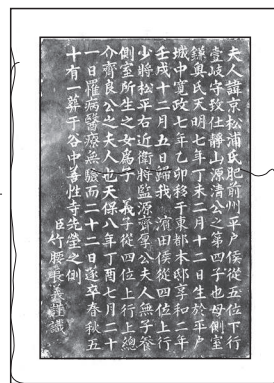 夫人諱京松浦氏肥前州平戸侯從五位下行
壹岐守致仕靜山源清公之第四子也母側室
鎮奥氏天明七年丁未二月十二日生於平戸
城中寛政七年乙卯移于東都本邸享和二年
壬戌十二月五日歸我 濱田侯從四位上行
少將松平右近衛將監源齊厚公夫人無子養
側室所生之女爲子 義子從四位上行上總
介齊良公之夫人也天保八年丁酉七月二十
一日罹病醫療無驗而二十二日遂卒春秋五
十有一葬于谷中善性寺先塋之側
臣竹腰長養謹識